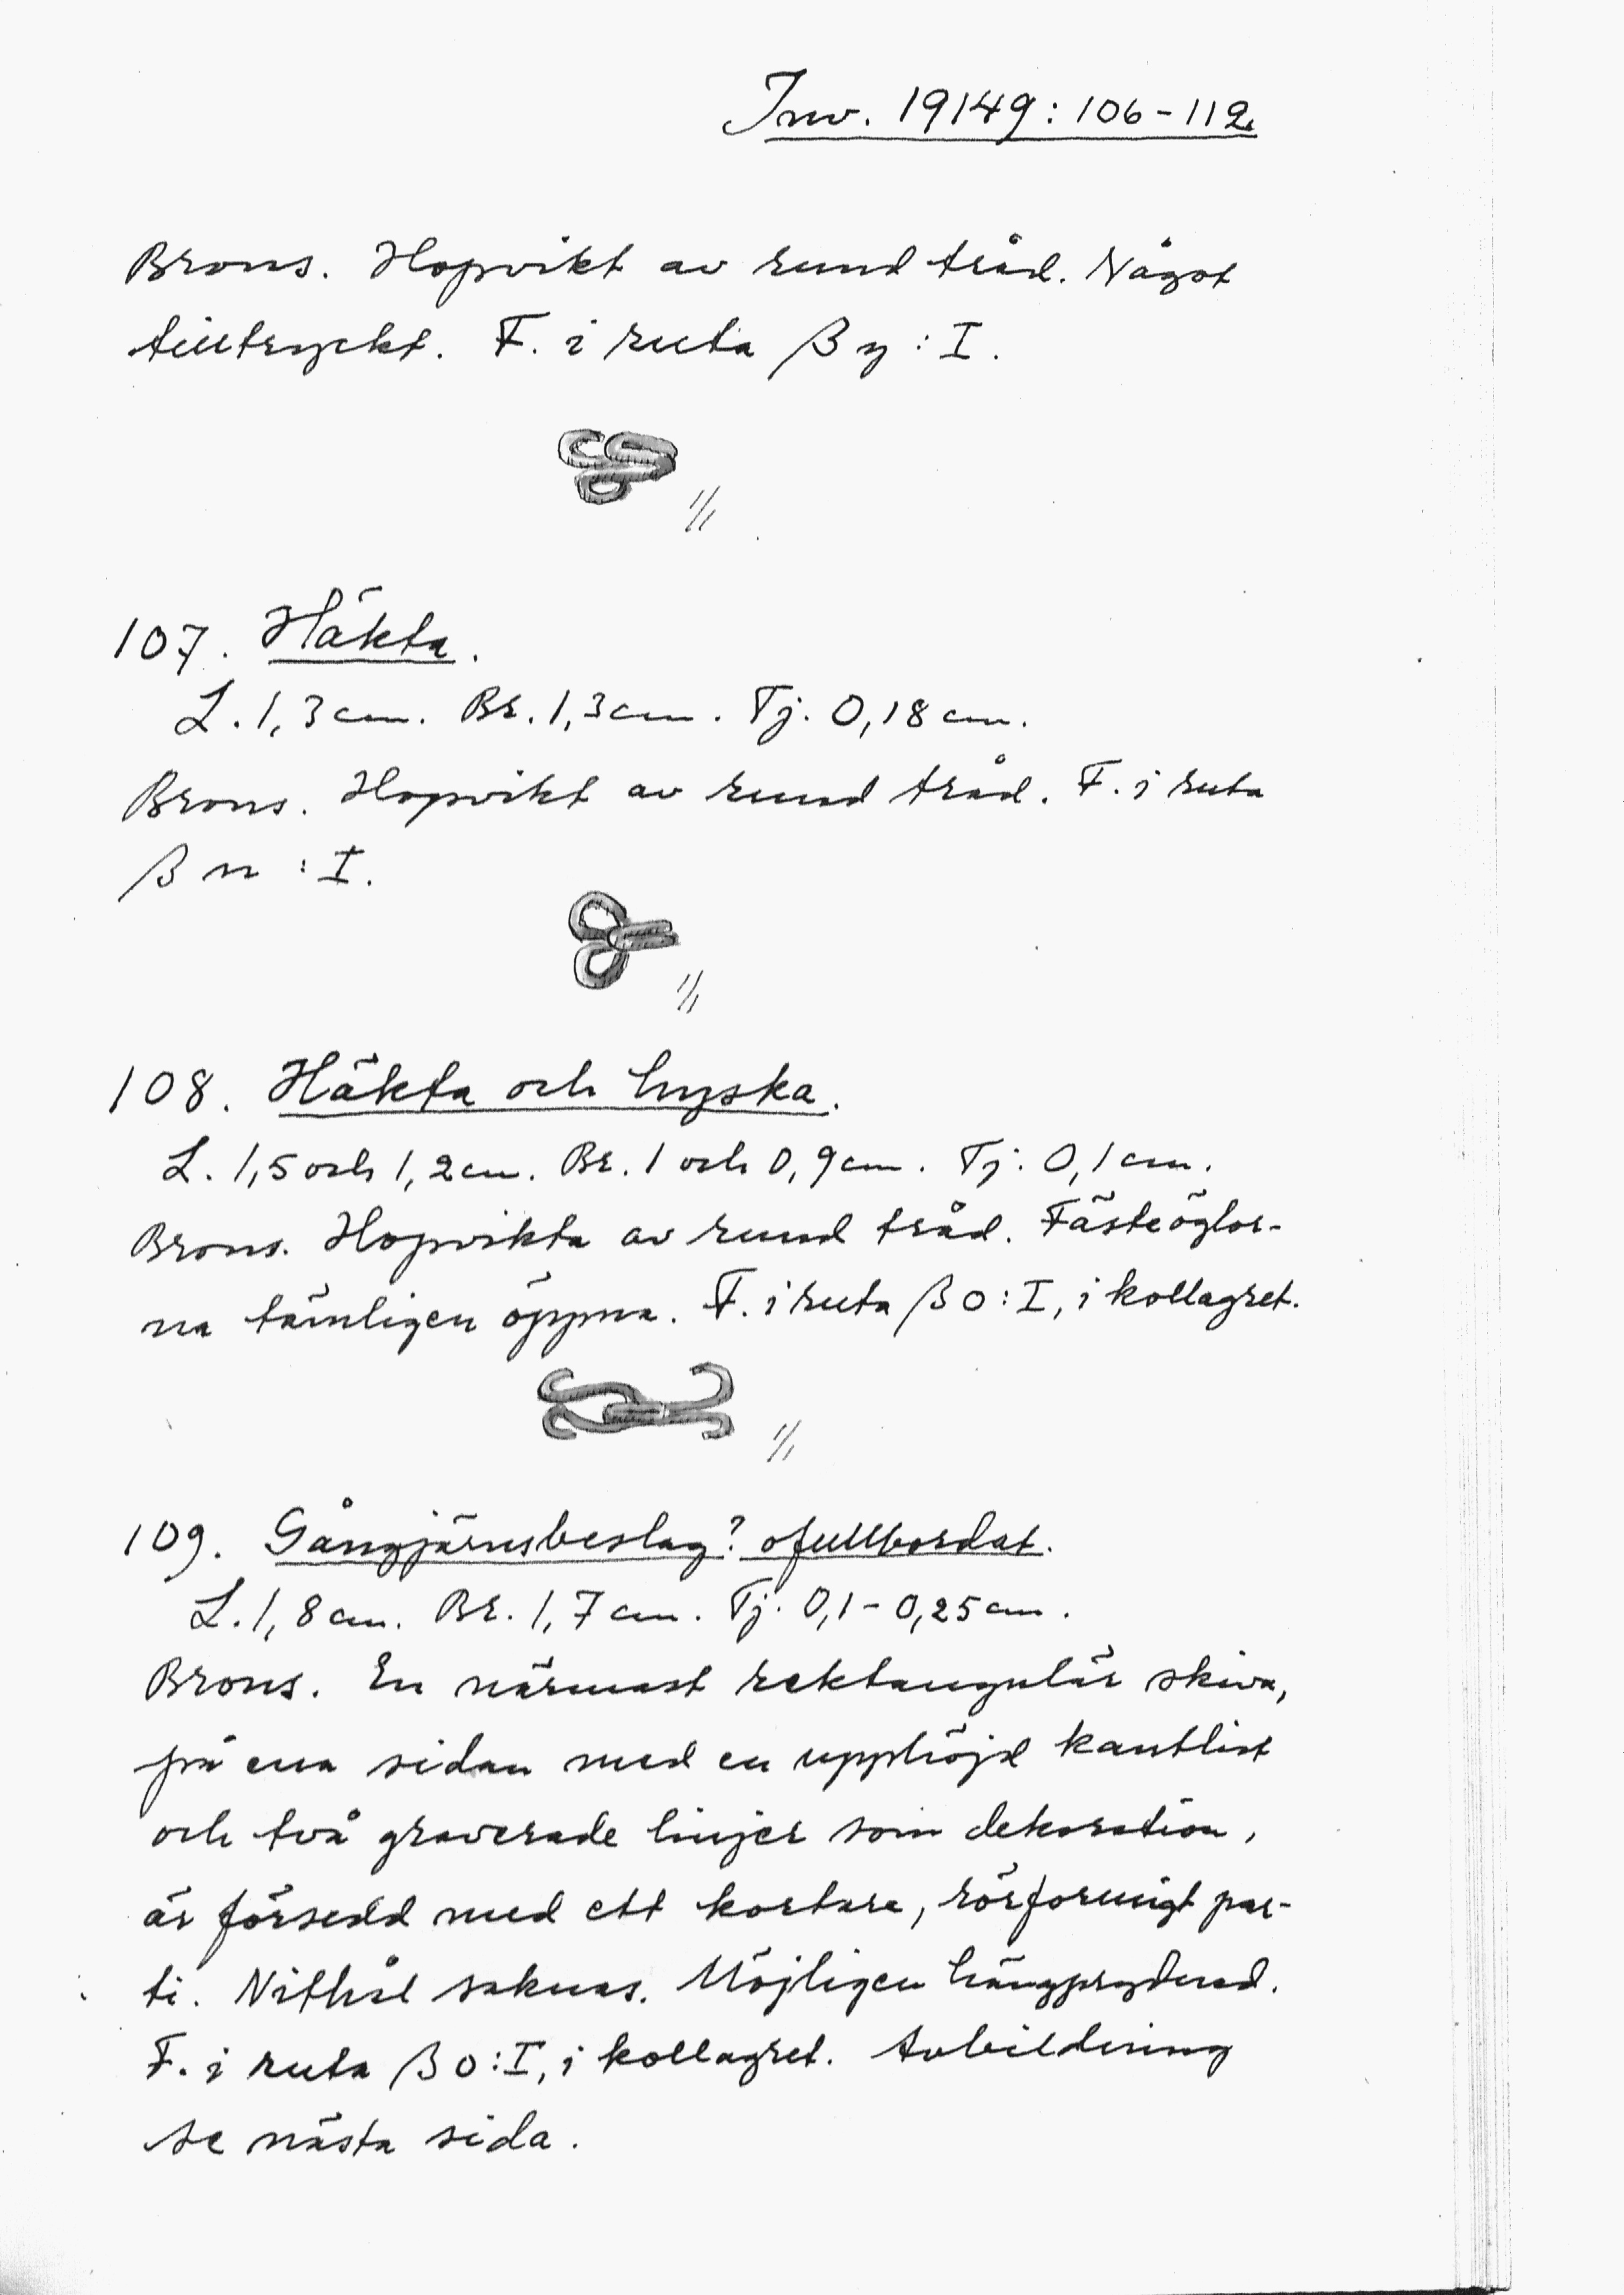 Inv. 19149: 106-112.
Brons. Hopvikt av rund tråd. Något
tilltryckt. F. i ruta β y: I.
1/1
107. Häkta.
L. 1,3 cm. Br. 1,3 cm. Tj. 0,18 cm.
Brons. Hopvikt av rund tråd. F. i ruta
β n : I.
1/1
108. Häkta och hyska.
L. 1,5 och 1,2 cm. Br. 1 och 0,9 cm. Tj. 0,1 cm.
Brons. Hopvikta av rund tråd. Fästeöglor-
na tämligen öppna. F. i ruta β o: I, i kollagret.
1/1
109. Gångjärnsbeslag? ofullbordat.
L. 1,8 cm. Br. 1,7 cm. Tj. 0,1 - 0,25 cm.
Brons. En närmast rektangulär skiva,
på ena sidan med en upphöjd kantlist
och två graverade linjer som dekoration,
är försedd med ett kortare, rörformigt par-
ti. Nithål saknas. Möjligen hängprydnad.
F. i ruta β o: I, i kollagret. Avbildning
se nästa sida.